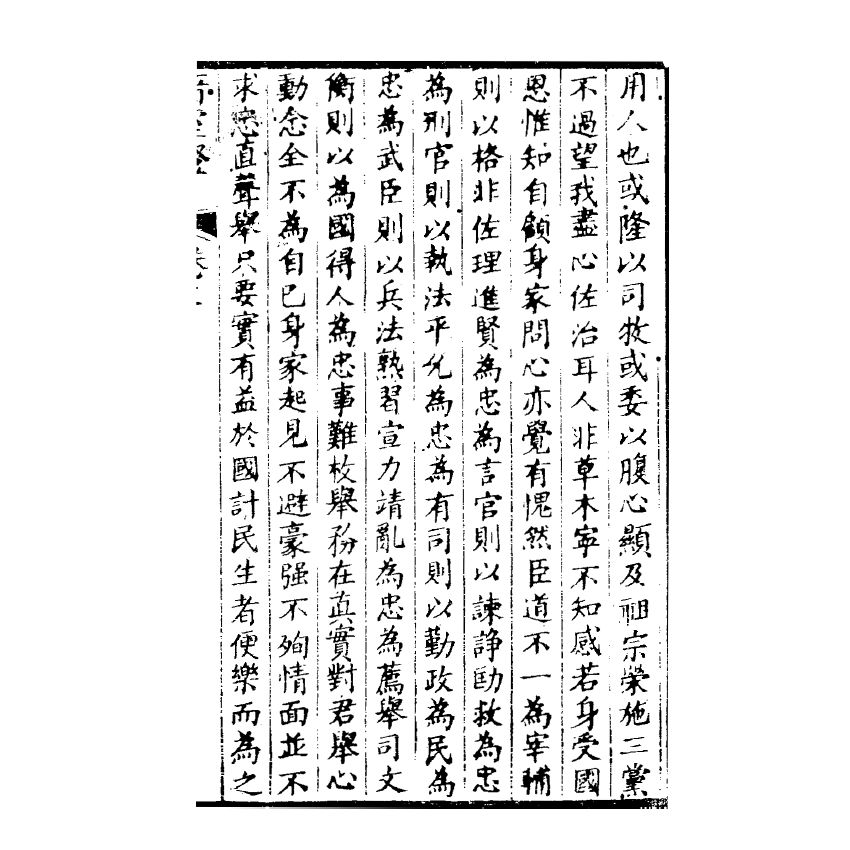 用人也或隆以司牧或委以腹心顯及祖宗榮施三黨
不過望我盡心佐治耳人非草木寧不知感若身受國
恩惟知自顧身家問心亦覺有愧然臣道不一為宰輔
則以格非佐理進賢為忠為言官則以諫諍匡救為忠
為刑官則以執法平允為忠為有司則以勤政為民為
忠為武臣則以兵法熟習宣力靖亂為忠為薦舉司文
衡則以為國得人為忠事難枚舉務在真實對君舉心
動念全不為自己身家起見不避豪强不殉情面並不
求忠直聲舉只要實有益於國計民生者便樂而為之